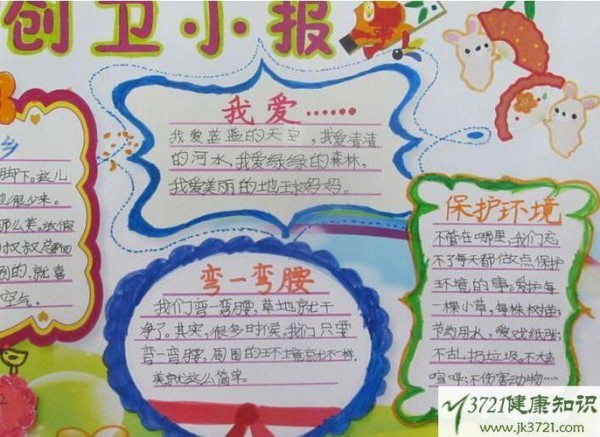 创卫小报
乡
脚下。这儿
很少来。
叔叔
的,就喜
空气。
我爱……
我爱蓝蓝的天空,我爱清清
的河水,我爱绿绿的森林。
我爱美丽的地球妈妈。
弯一弯腰
我们弯一弯腰,草地就干
净了。其实,很多时候,我们只要
弯一弯腰,周围的环境就不一样。
美就这么简单。
保护环境
不管在哪里,我们忘
不了每天都做点保护
环境的事。爱护每
一棵小草,每株树苗;
节约用水,爱戏纸张;
不乱扔垃圾,不大声
喧哗;不伤害动物……
3721健康知识
www.jk3721.com